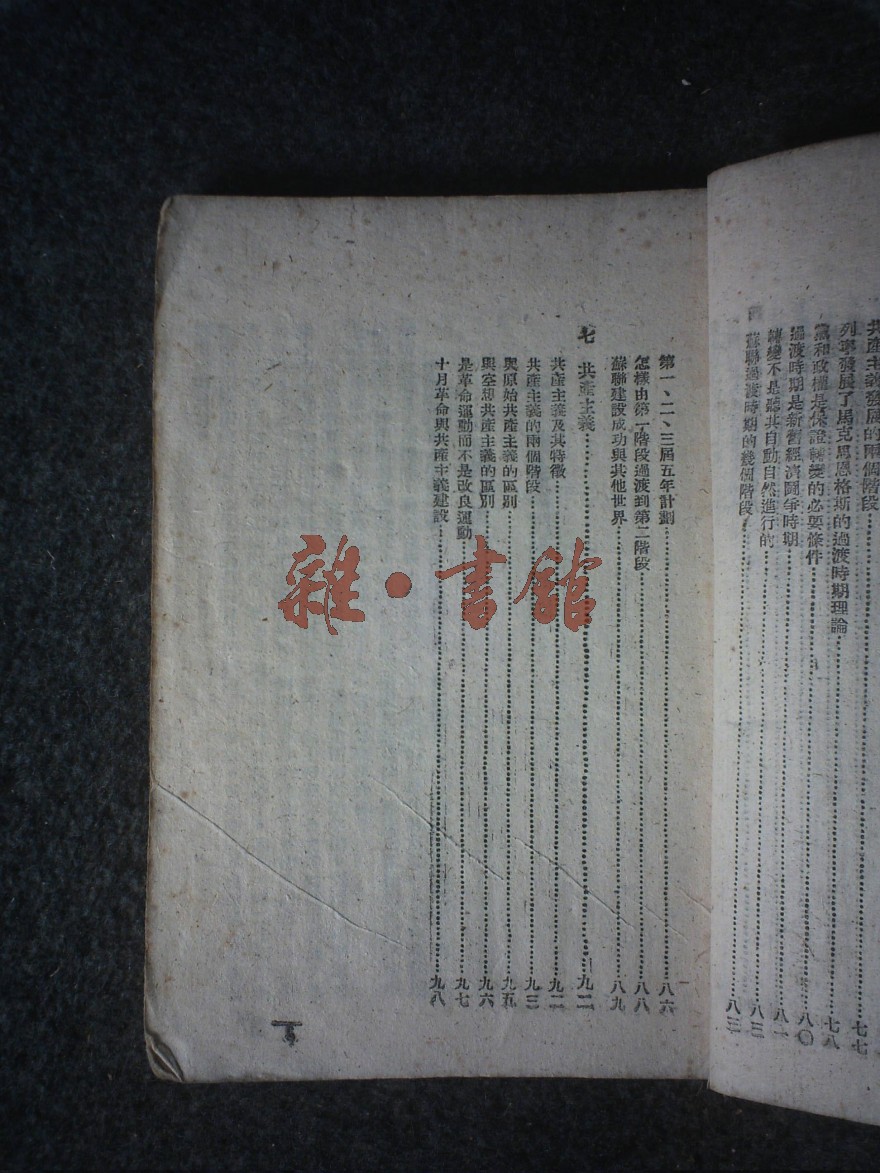 共產主義發展的兩個階段……七七
列寧發展了馬克思恩格斯的過渡時期理論……七八
黨和政權是保證轉變的必要條件……八〇
過渡時期是新舊經濟鬪爭時期……八一
轉變不是聽其自動自然進行的……八三
蘇聯過渡時期的幾個階段……八三
第一、二、三屆五年計劃……八六
怎樣由第一階段過渡到第二階段……八八
蘇聯建設成功與其他世界……八九
七 共產主義……九二
共產主義及其特徵……九二
共產主義的兩個階段……九三
與原始共產主義的區別……九五
與空想共產主義的區別……九六
是革命運動而不是改良運動……九七
十月革命與共產主義建設……九八
雜·書館